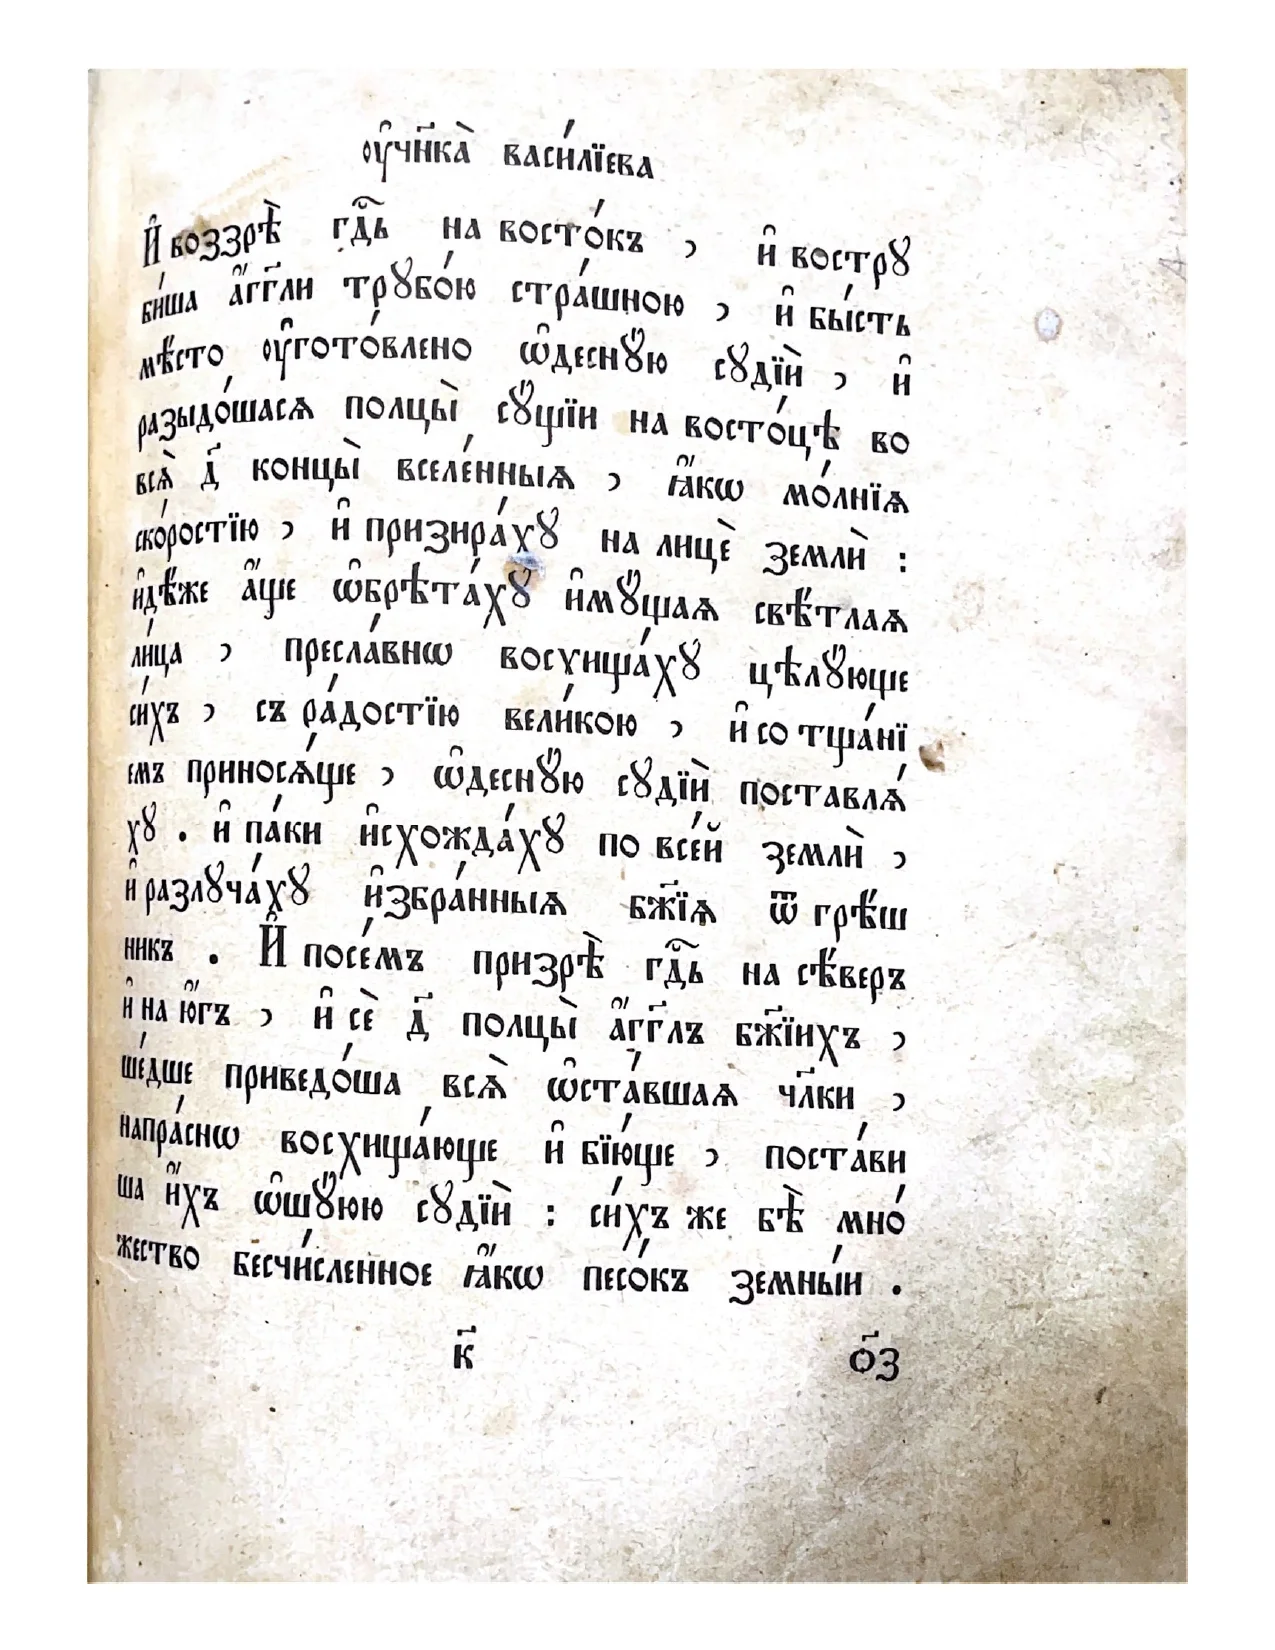 ᲂу҆чн҃ка̀ васи́лїева
И҆ воззрѣ̀ гдⷭ҇ь на восто́къ , и҆ востру
би́ша а҆́гг҃ли трꙋбо́ю стра́шною , и҆ бы́сть
мѣ́сто ᲂу҆гото́влено ѡ҆деснꙋ́ю сꙋдїѝ , и҆
разыдо́шасѧ полцы̀ сꙋ́щїи на восто́цѣ во
всѧ̀ д҃ концы̀ вселе́нныѧ , ꙗ҆́кѡ мо́лнїѧ
ско́ростїю , и҆ призира́хꙋ на лицѐ землѝ :
и҆дѣ́же а҆́ще ѡ҆брѣта́хꙋ и҆мꙋ́щаѧ свѣ́тлаѧ
ли́ца , пресла́внѡ восхища́хꙋ цѣлꙋ́юще
си́хъ , съ ра́достїю вели́кою , и҆ со тща́нї
емъ приносѧ́ще , ѡ҆деснꙋ́ю сꙋдїѝ поставлѧ́
хꙋ . и҆ па́ки и҆схожда́хꙋ по все́й землѝ ,
и҆ разлꙋча́хꙋ и҆збра́нныѧ бж҃їѧ ѿ грѣ́ш
никъ . И҆ посе́мъ призрѣ̀ гдⷭ҇ь на сѣ́веръ
и҆ на ю҆́гъ , и҆ сѐ д҃ полцы̀ а҆́гг҃лъ бж҃їихъ ,
ше́дше приведо́ша всѧ̀ ѡ҆ста́вшаѧ чл҃ки ,
напра́снѡ восхища́юще и҆ бїю́ще , поста́ви
ша и҆́хъ ѡ҆шꙋ́юю сꙋдїѝ : си́хъ же бѣ̀ мно́
жество бесчи́сленное ꙗ҆́кѡ песо́къ земны́и .
к҃ ѻ҃з